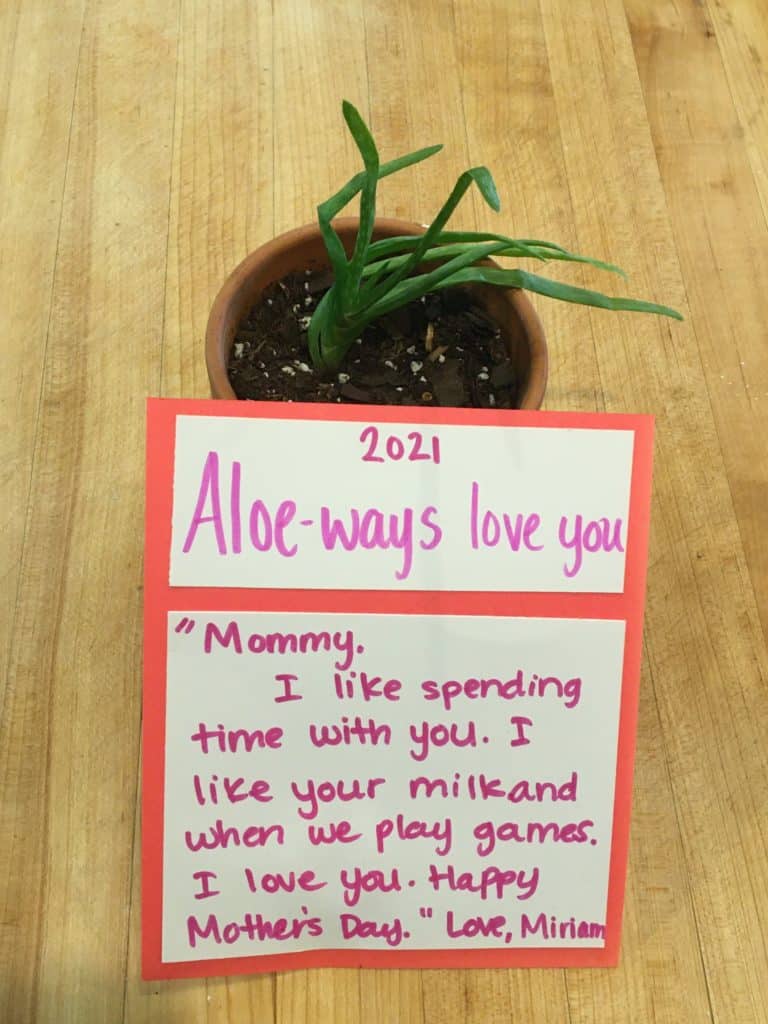 2021
Aloe-ways love you
"Mommy.
I like spending
time with you. I
like your milk and
when we play games.
I love you. Happy
Mother's Day." Love, Miriam